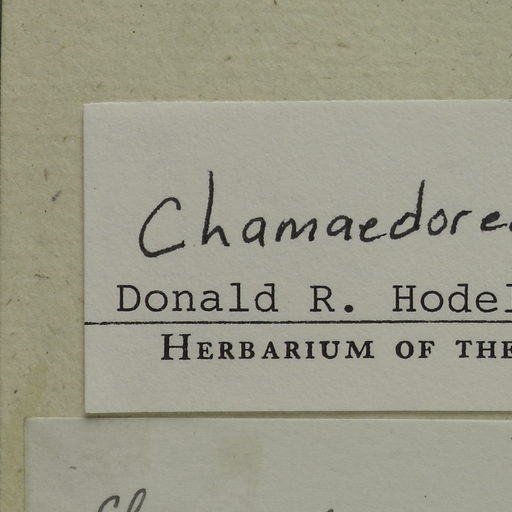 Chamaedore
Donald R. Hodel
HERBARIUM OF THE